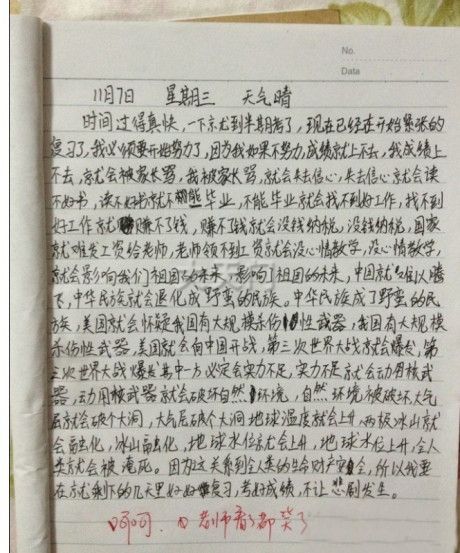 No.
Data
11月7日 星期三 天气晴
时间过得真快,一下京尤到半期考了,现在已经在开始紧张的
复习了,我必须要开始努力了,因为我如果不努力,成绩就上不去,我成绩上
不去,就会被家长骂,我被家长骂,就会失去信心,失去信心就会读
不好书,读不好书就不能毕业,不能毕业就会找不到好工作,找不到
好工作就赚不了钱,赚不了钱就会没钱纳税,没钱纳税,国家
就难发工资给老师,老师领不到工资就会没心情教学,没心情教学,
就会影响我们祖国的未来,影响了祖国的未来,中国就难以腾
飞,中华民族就会退化成野蛮的民族。中华民族成了野蛮的民
族,美国就会怀疑我国有大规模杀伤性武器,我国有大规模
杀伤性武器,美国就会向中国开战,第三次世界大战就会爆发,第
三次世界大战爆发其中一方必定会实力不足,实力不足就会动用核武
器,动用核武器就会破坏自然环境,自然环境被破坏大气
层就会破个大洞,大气层破个大洞地球温度就会上升,两极冰山就
会融化,冰山融化,地球水位就会上升,地球水位上升,全人
类就会被淹死。因为这关系到全人类的生命财产安全,所以我要
在就剩下的几天里好好复习,考好成绩,不让悲剧发生。
呵呵. 老师看了都笑了